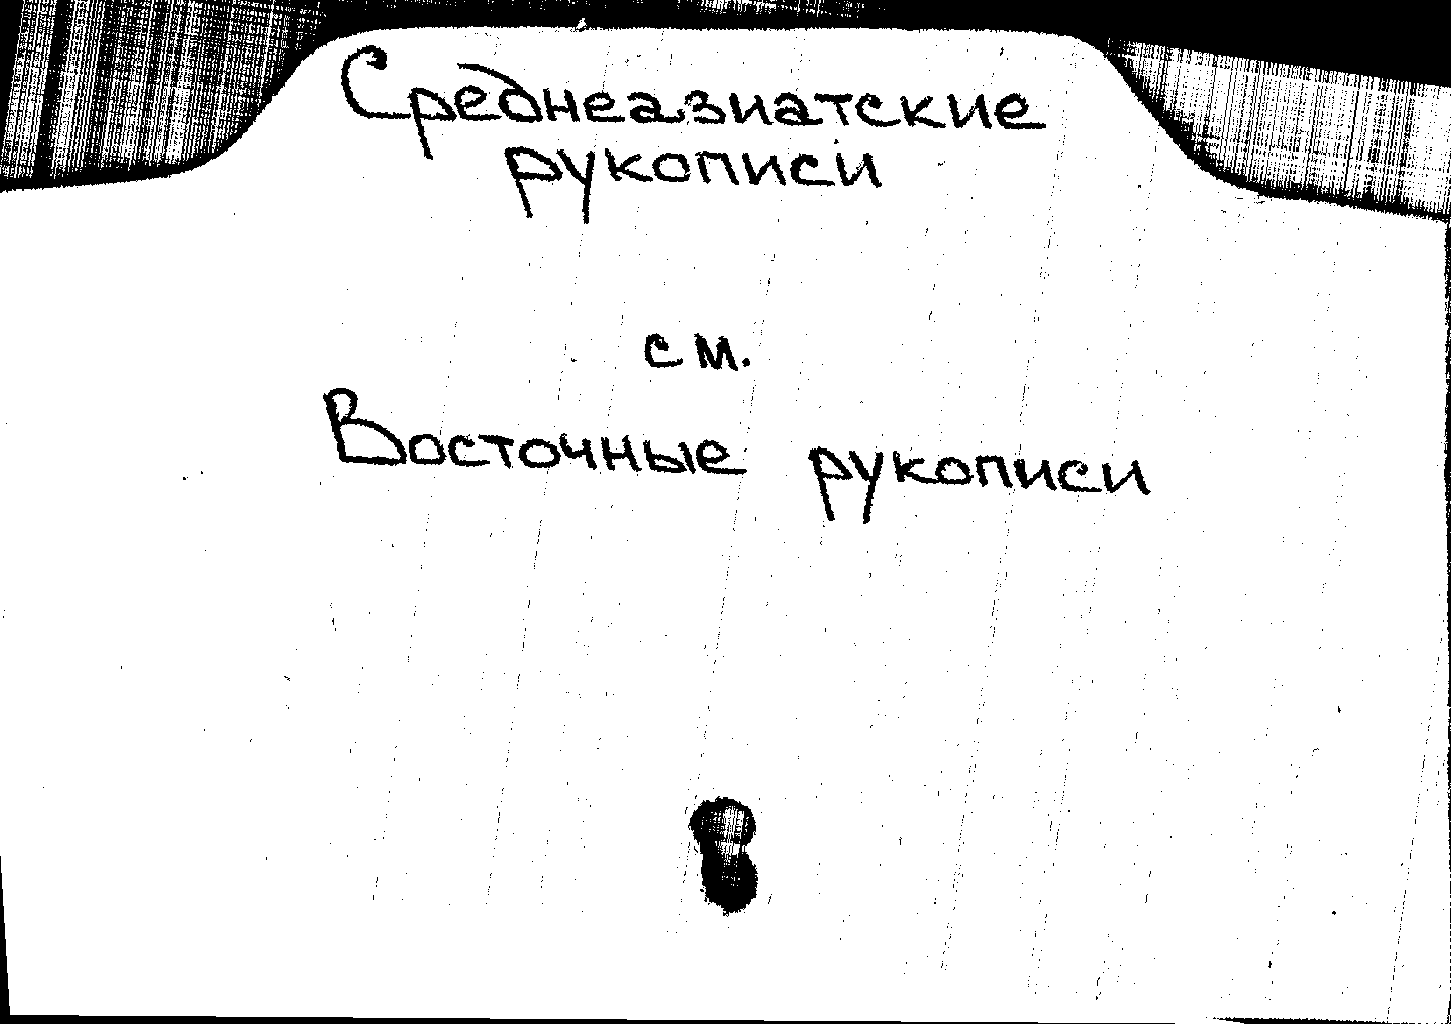 Среднеазиатские
рукописи
см.
Восточные рукописи